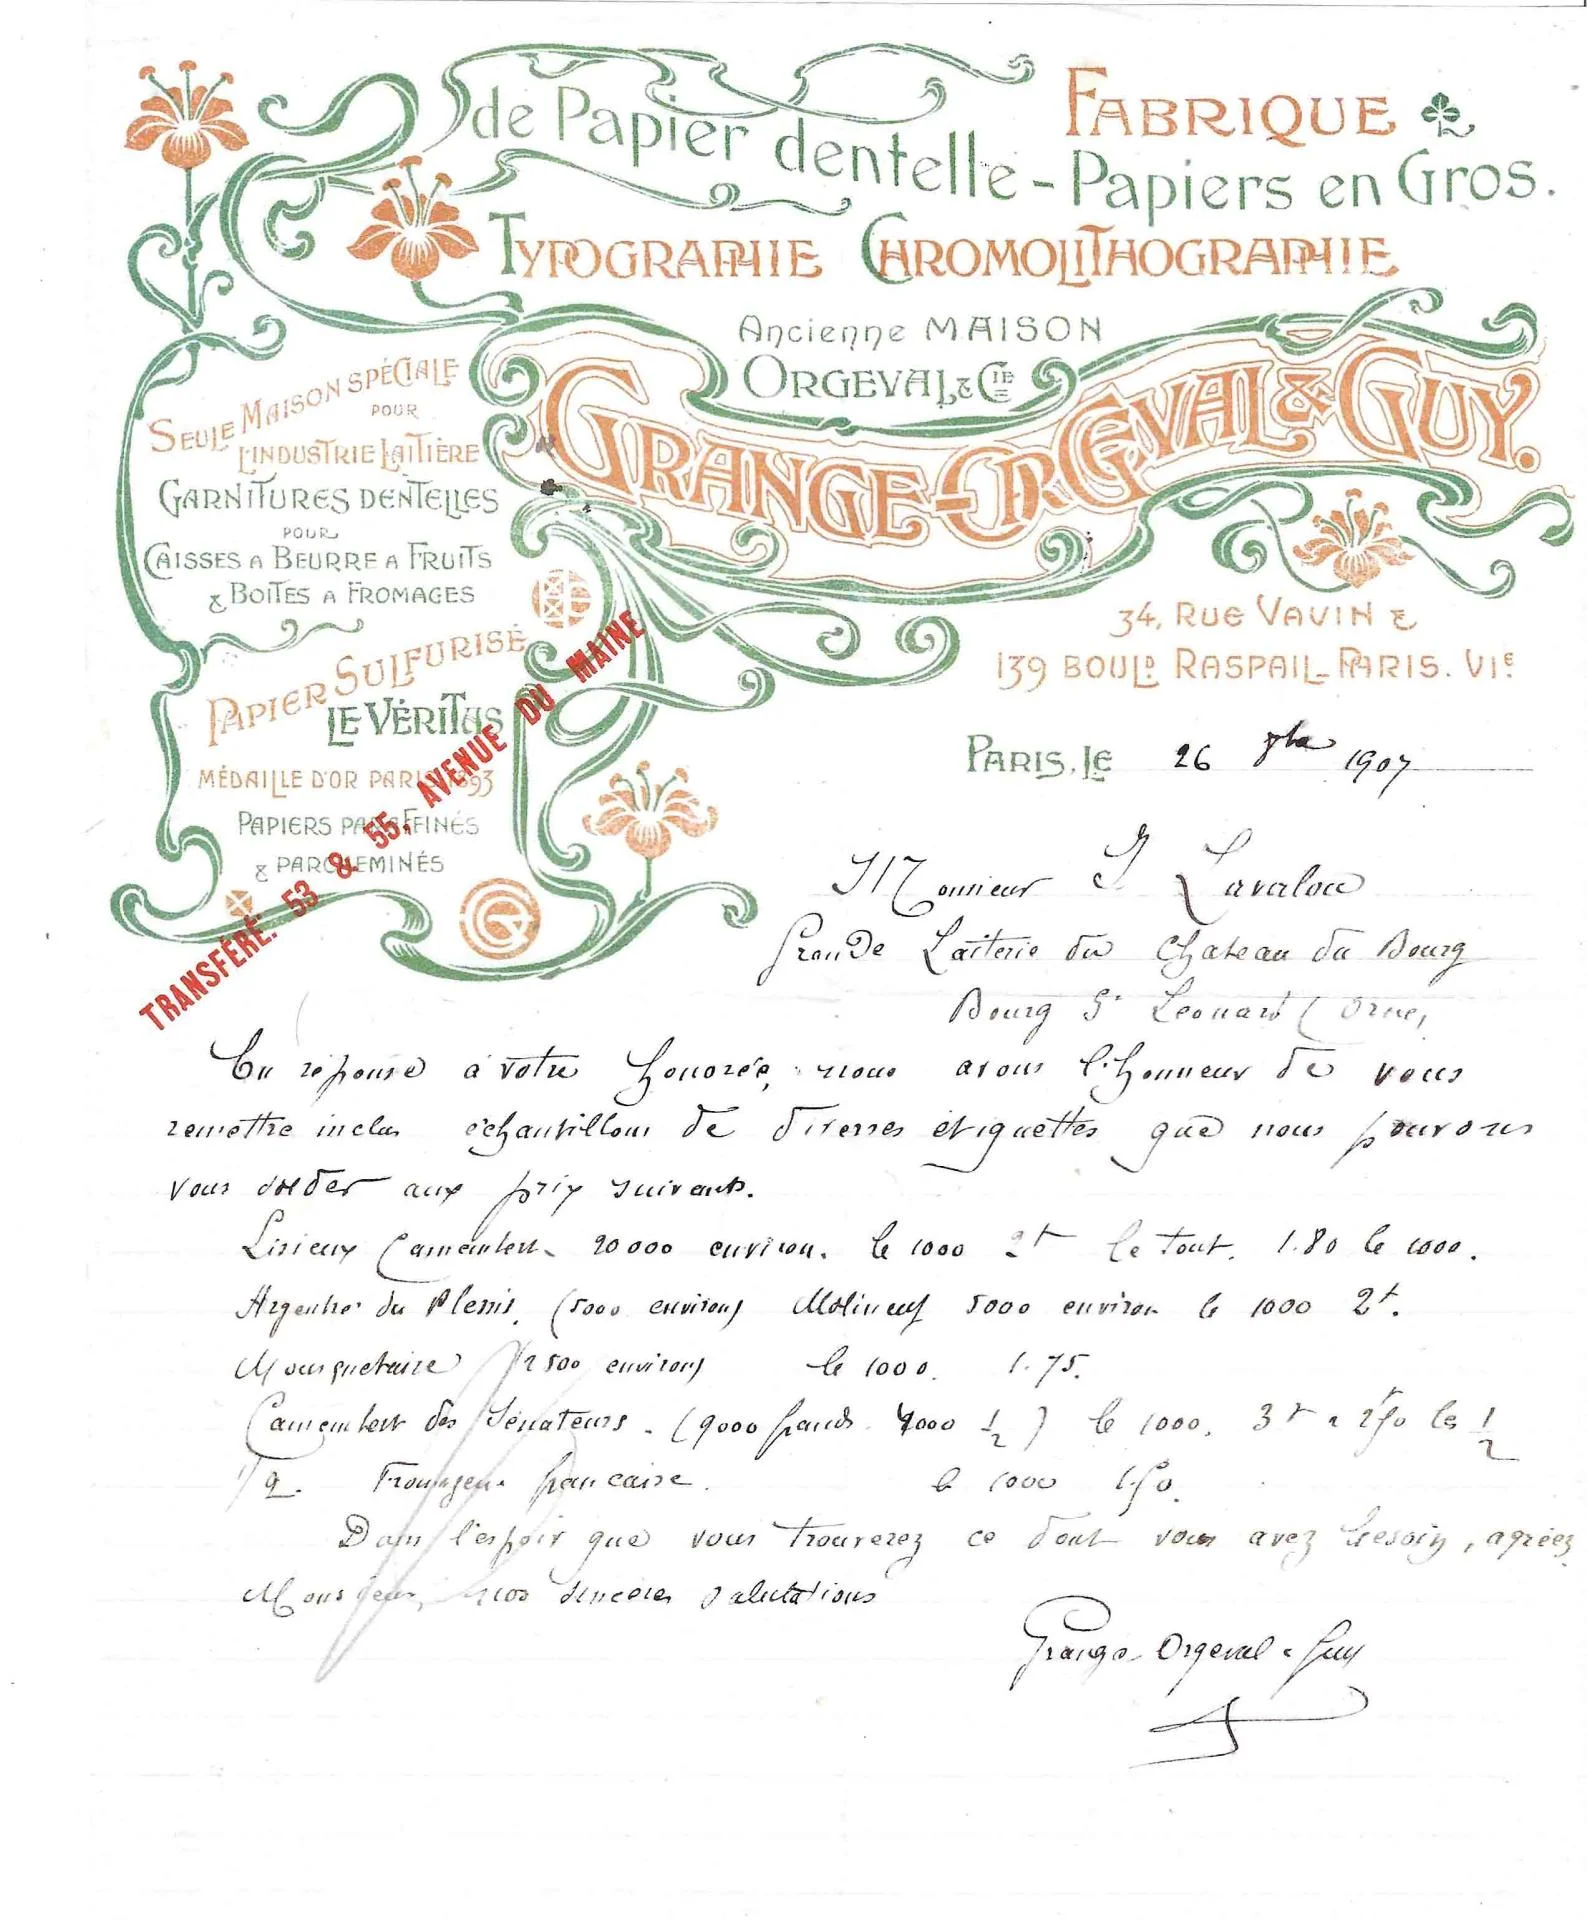 FABRIQUE
de Papier dentelle - Papiers en Gros.
TYPOGRAPHIE CHROMOLITHOGRAPHIE
Ancienne MAISON
ORGEVAL & CIE
GRANGE-ORGEVAL & GUY.
34, RUE VAVIN &
139 BOULD RASPAIL-PARIS. VIe
SEULE MAISON SPÉCIALE
POUR
L'INDUSTRIE LAITIÈRE
GARNITURES DENTELLES
POUR
CAISSES A BEURRE A FRUITS
& BOITES A FROMAGES
PAPIER SULFURISÉ
LE VÉRITAS
MÉDAILLE D'OR PARIS 1893
PAPIERS PARAFFINÉS
& PARCHEMINÉS
TRANSFÉRÉ: 53 & 55, AVENUE DU MAINE
PARIS, LE 26 1907
Monsieur J Lavalou
Grande Laiterie du Chateau du Bourg
Bourg St Leonard (Orne)
En réponse à votre honorée, nous avons l'honneur de vous
remettre inclus échantillons de diverses étiquettes que nous pouvons
vous solder aux prix suivants.
Lisieux Camembert - 20000 environ. le 1000 2f le tout. 1.80 le 1000.
Argentré du Plessis, (5000 environ) Molineuf 5000 environ le 1000 2f.
Mousquetaire (2500 environ) le 1000. 1.75.
Camembert des Sénateurs - (9000 grands 4000 1/2) le 1000. 3f 2f50 les 1/2
française. le 1000 1.50.
Dans l'espoir que vous trouverez ce dont vous avez besoin, agréez
Monsieur, nos sincères salutations
Grange-Orgeval & Guy